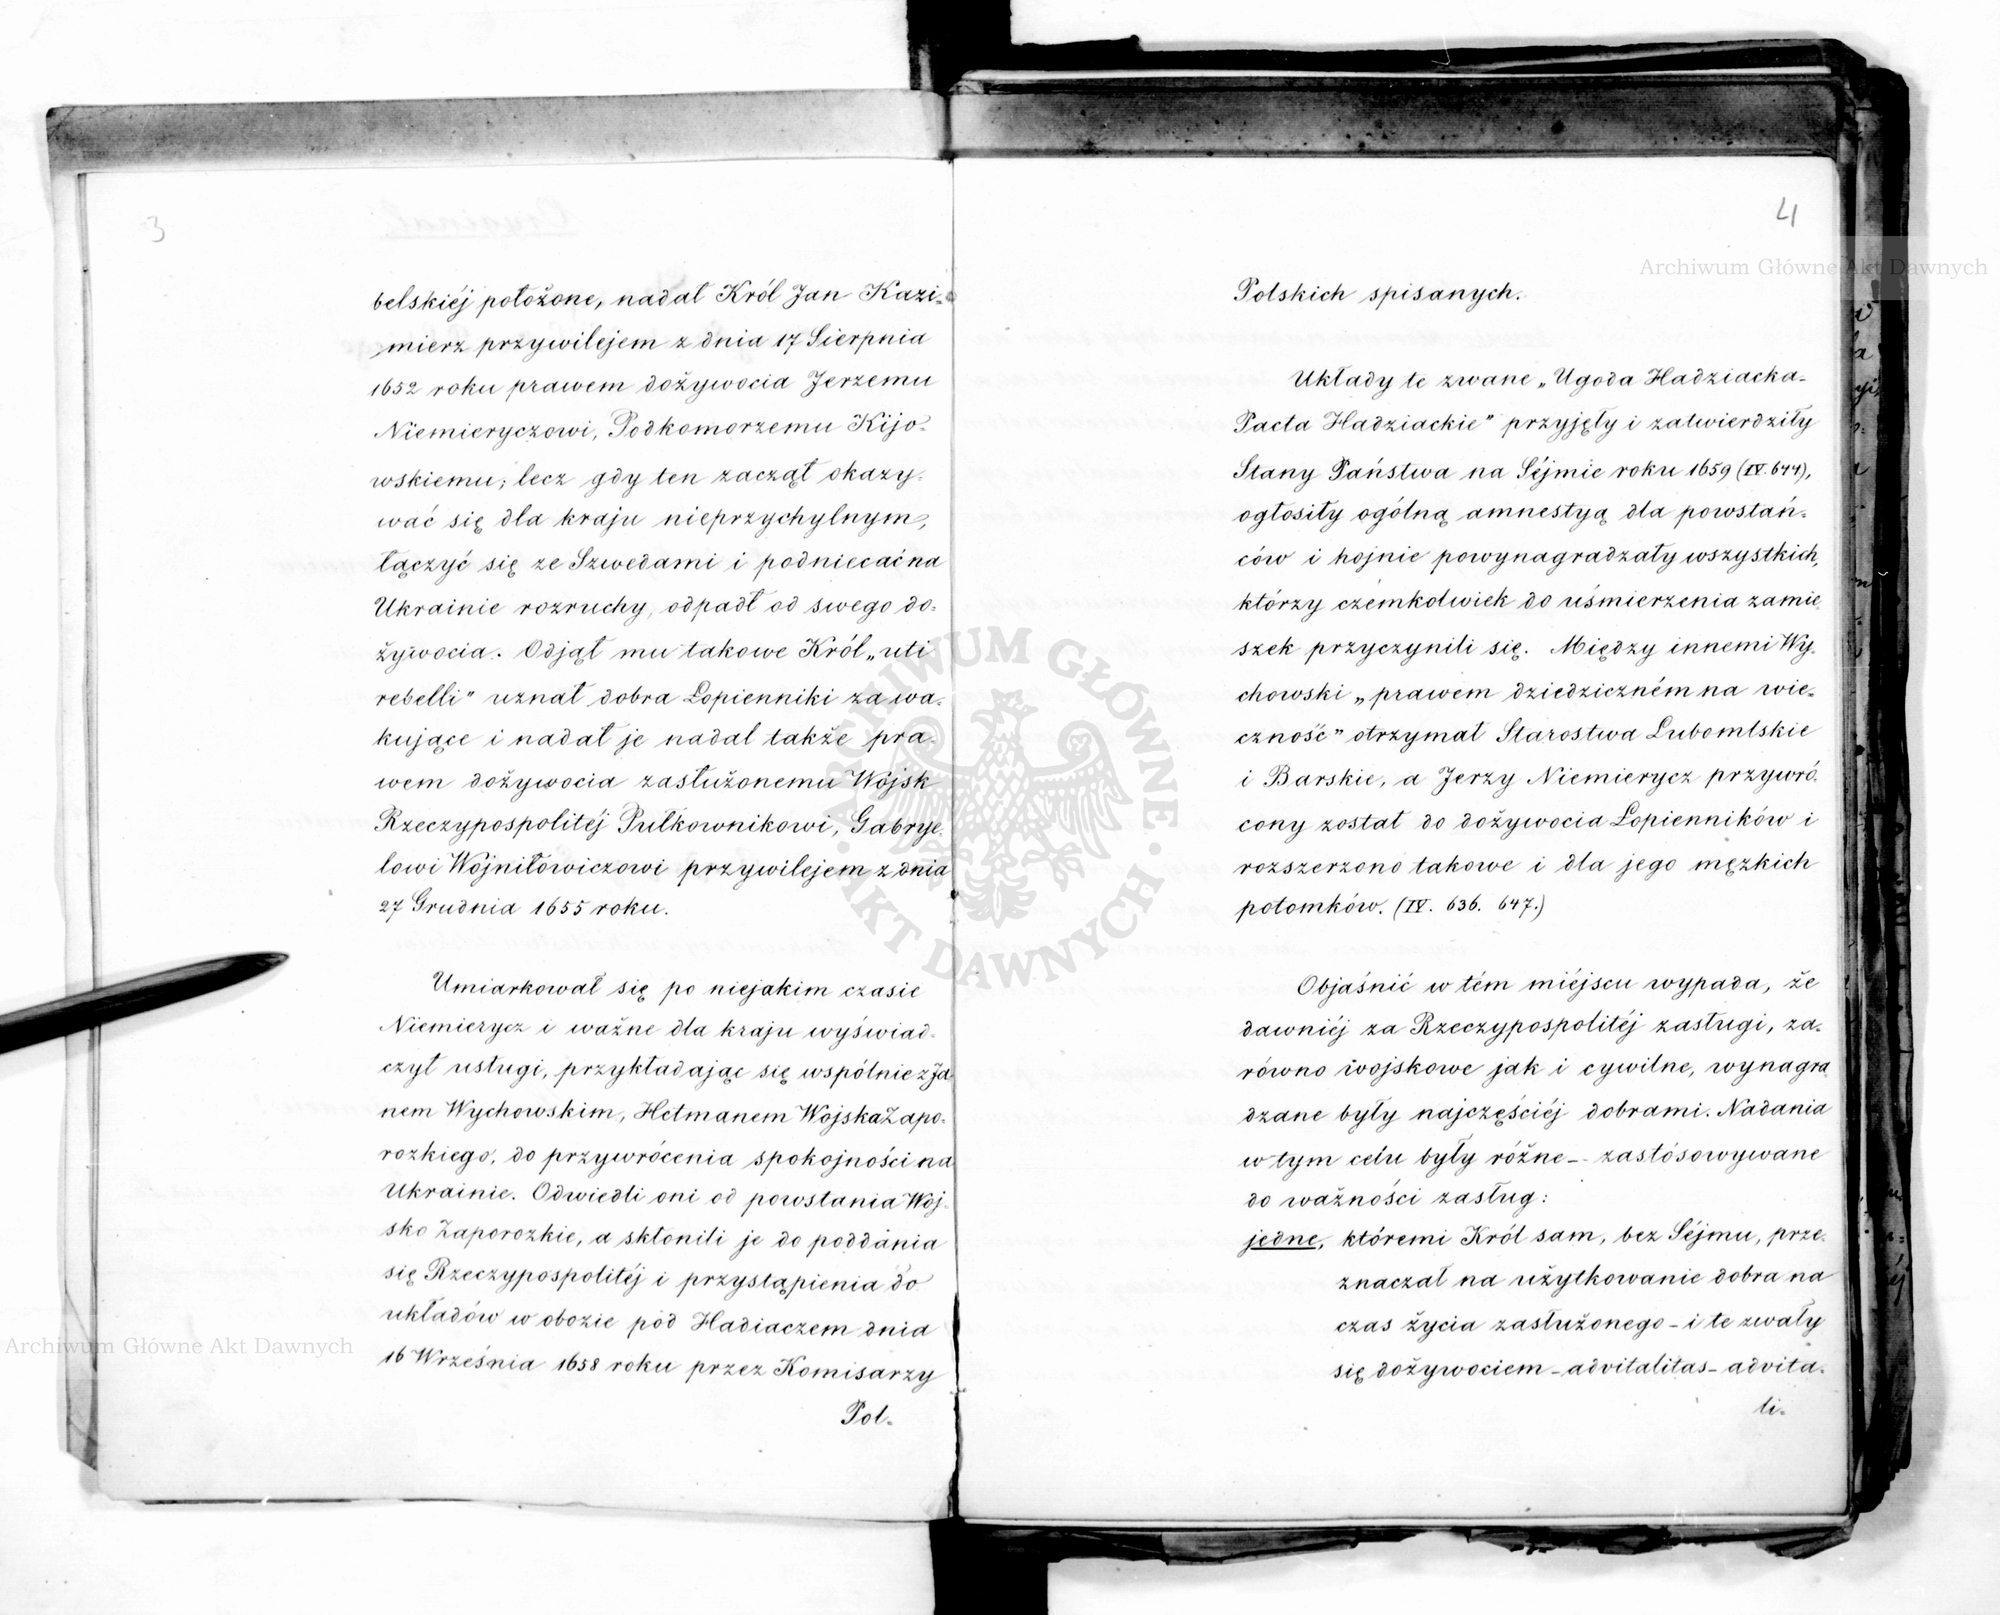 3
belskiéj położone, nadał Król Jan Kazi-
mierz przywilejem z dnia 17 Sierpnia
1652 roku prawem dożywocia Jerzemu
Niemieryczowi, Podkomorzemu Kijo-
wskiemu; lecz gdy ten zaczął okazy-
wać się dla kraju nieprzychylnym,
łączyć się ze Szwedami i podniecać na
Ukrainie rozruchy, odpadł od swego do-
żywocia. Odjął mu takowe Król „uti
rebelli" uznał dobra Łopienniki za wa-
kujące i nadał je nadal także pra-
wem dożywocia zasłużonemu Wojsk
Rzeczypospolitéj Pułkownikowi, Gabrye-
lowi Wojniłowiczowi przywilejem z dnia
27 Grudnia 1655 roku.
Umiarkował się po niejakim czasie
Niemierycz i ważne dla kraju wyświad-
czył usługi, przykładając się wspólnie z Ja
nem Wychowskim, Hetmanem Wojska Zapo-
rozkiego, do przywrócenia spokojności na
Ukrainie. Odwiedli oni od powstania Woj-
sko Zaporozkie, a skłonili je do poddania
się Rzeczypospolitéj i przystąpienia do
układów w obozie pod Hadiaczem dnia
16 Września 1658 roku przez Komisarzy
Pol-
4
Polskich spisanych.
Układy te zwane „Ugoda Hadziacka-
Pacta Hadziackie" przyjęły i zatwierdziły
Stany Państwa na Séjmie roku 1659 (IV. 644),
ogłosiły ogólną amnestyą dla powstań-
ców i hojnie powynagradzały wszystkich,
którzy czemkolwiek do uśmierzenia zamie
szek przyczynili się. Między innemi Wy-
chowski „prawem dziedziczném na wie-
czność" otrzymał Starostwa Lubomlskie
i Barskie, a Jerzy Niemierycz przywró-
cony został do dożywocia Łopienników i
rozszerzono takowe i dla jego męzkich
potomków. (IV. 636. 647.)
Objaśnić w tém miéjscu wypada, że
dawniéj za Rzeczypospolitéj zasługi, za-
równo wojskowe jak i cywilne, wynagra
dzane były najczęściéj dobrami. Nadania
w tym celu były różne - zastósowywane
do ważności zasług:
jedne, któremi Król sam, bez Séjmu, prze-
znaczał na użytkowanie dobra na
czas życia zasłużonego - i te zwały
się dożywociem - advitalitas - advita-
li-
Archiwum Główne Akt Dawnych
Archiwum Główne Akt Dawnych
ARCHIWUM GŁÓWNE · AKT DAWNYCH ·